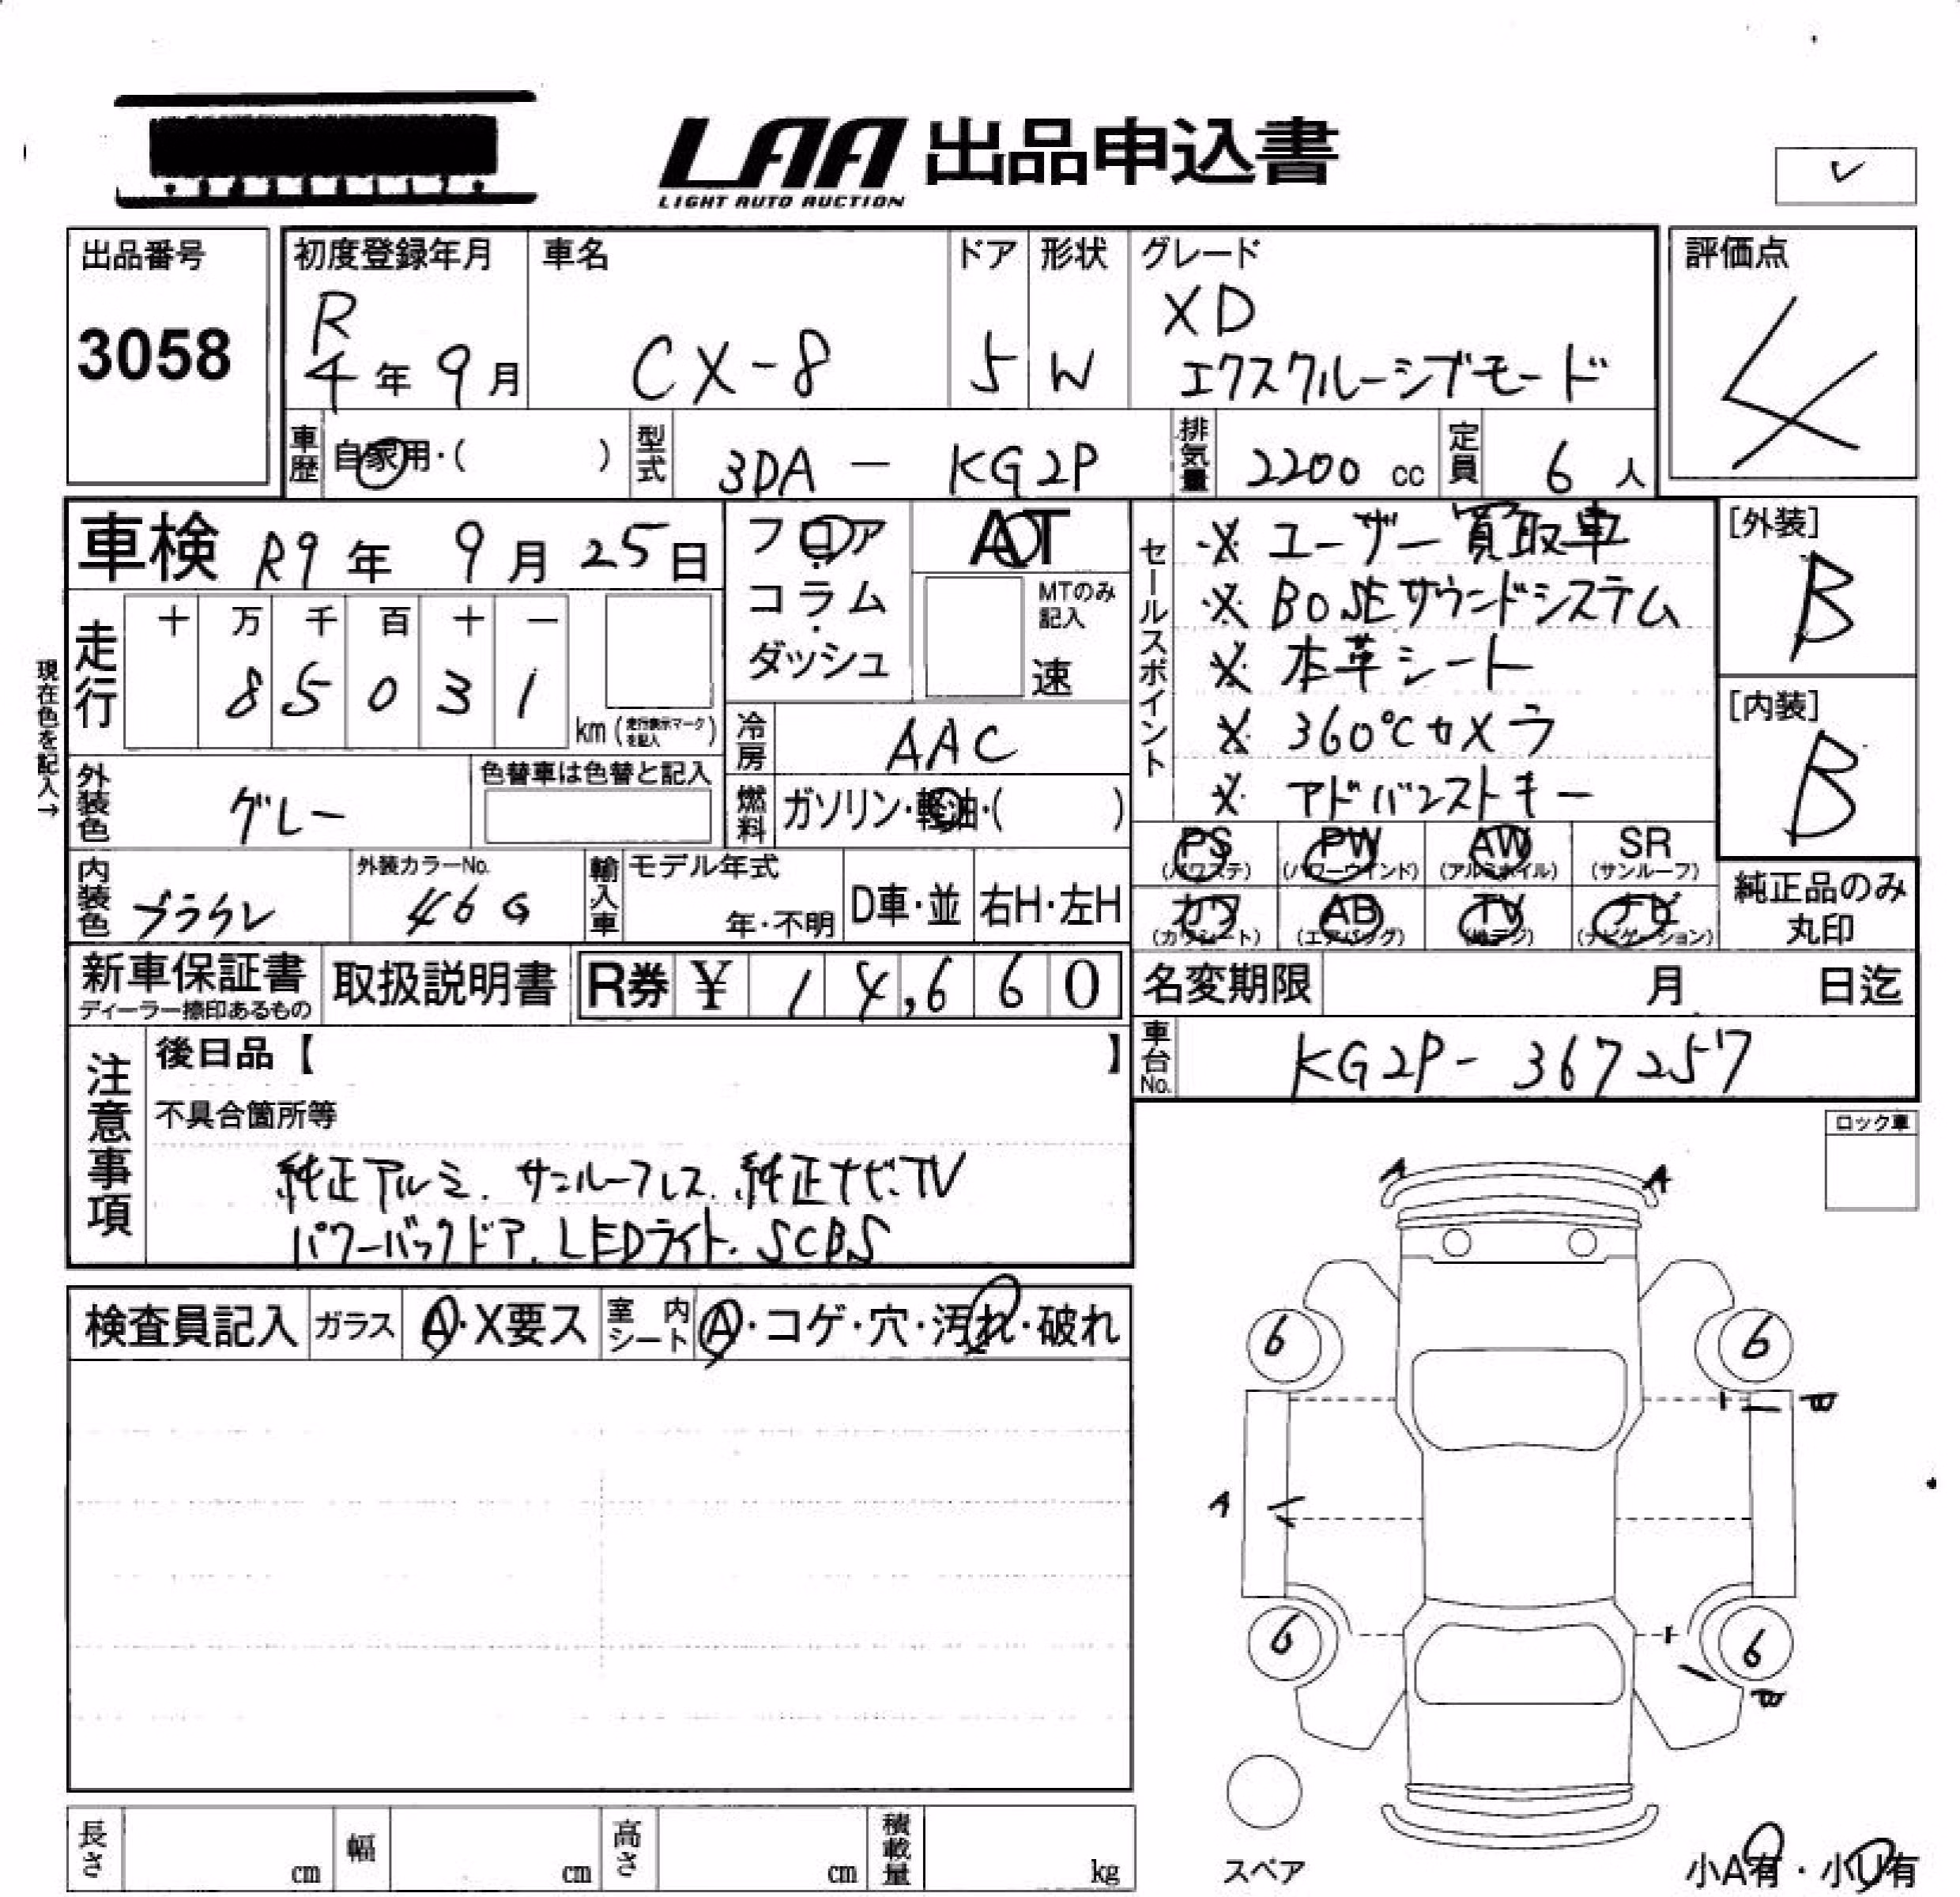 LAA 出品申込書
LIGHT AUTO AUCTION
出品番号
3058
初度登録年月
R
4年 9月
車名
CX-8
ドア
5
形状
W
グレード
XD
エクスクルーシブモード
評価点
4
車歴 自家用・( )
型式 3DA - KG2P
排気量 2200 cc
定員 6人
車検 R9年 9月 25日
フロア・コラム・ダッシュ
AT
MTのみ記入
速
セールスポイント
※ ユーザー買取車
※ BOSEサウンドシステム
※ 本革シート
※ 360℃カメラ
※ アドバンストキー
[外装]
B
[内装]
B
現在色を記入→
走行
十 万 千 百 十 一
8 5 0 3 1
km (走行表示マークを記入)
冷房 AAC
外装色 グレー
色替車は色替と記入
燃料 ガソリン・軽油・( )
PS (パワステ)
PW (パワーウインド)
AW (アルミホイル)
SR (サンルーフ)
カワ (カワシート)
AB (エアバッグ)
TV (地デジ)
ナビ (ナビゲーション)
純正品のみ丸印
内装色
外装カラーNo.
46G
輸入車
モデル年式
年・不明
D車・並
右H・左H
新車保証書
ディーラー捺印あるもの
取扱説明書
R券 ¥ 14,660
名変期限 月 日迄
車台No. KG2P-367257
注意事項
後日品【 】
不具合箇所等
純正アルミ. サンルーフレス. 純正ナビ.TV
パワーバックドア. LEDライト. SCBS
ロック車
検査員記入
ガラス A・X要ス
室内シート A・コゲ・穴・汚れ・破れ
A A
6 6
A
6 6
スペア
小A有・小U有
長さ cm
幅 cm
高さ cm
積載量 kg